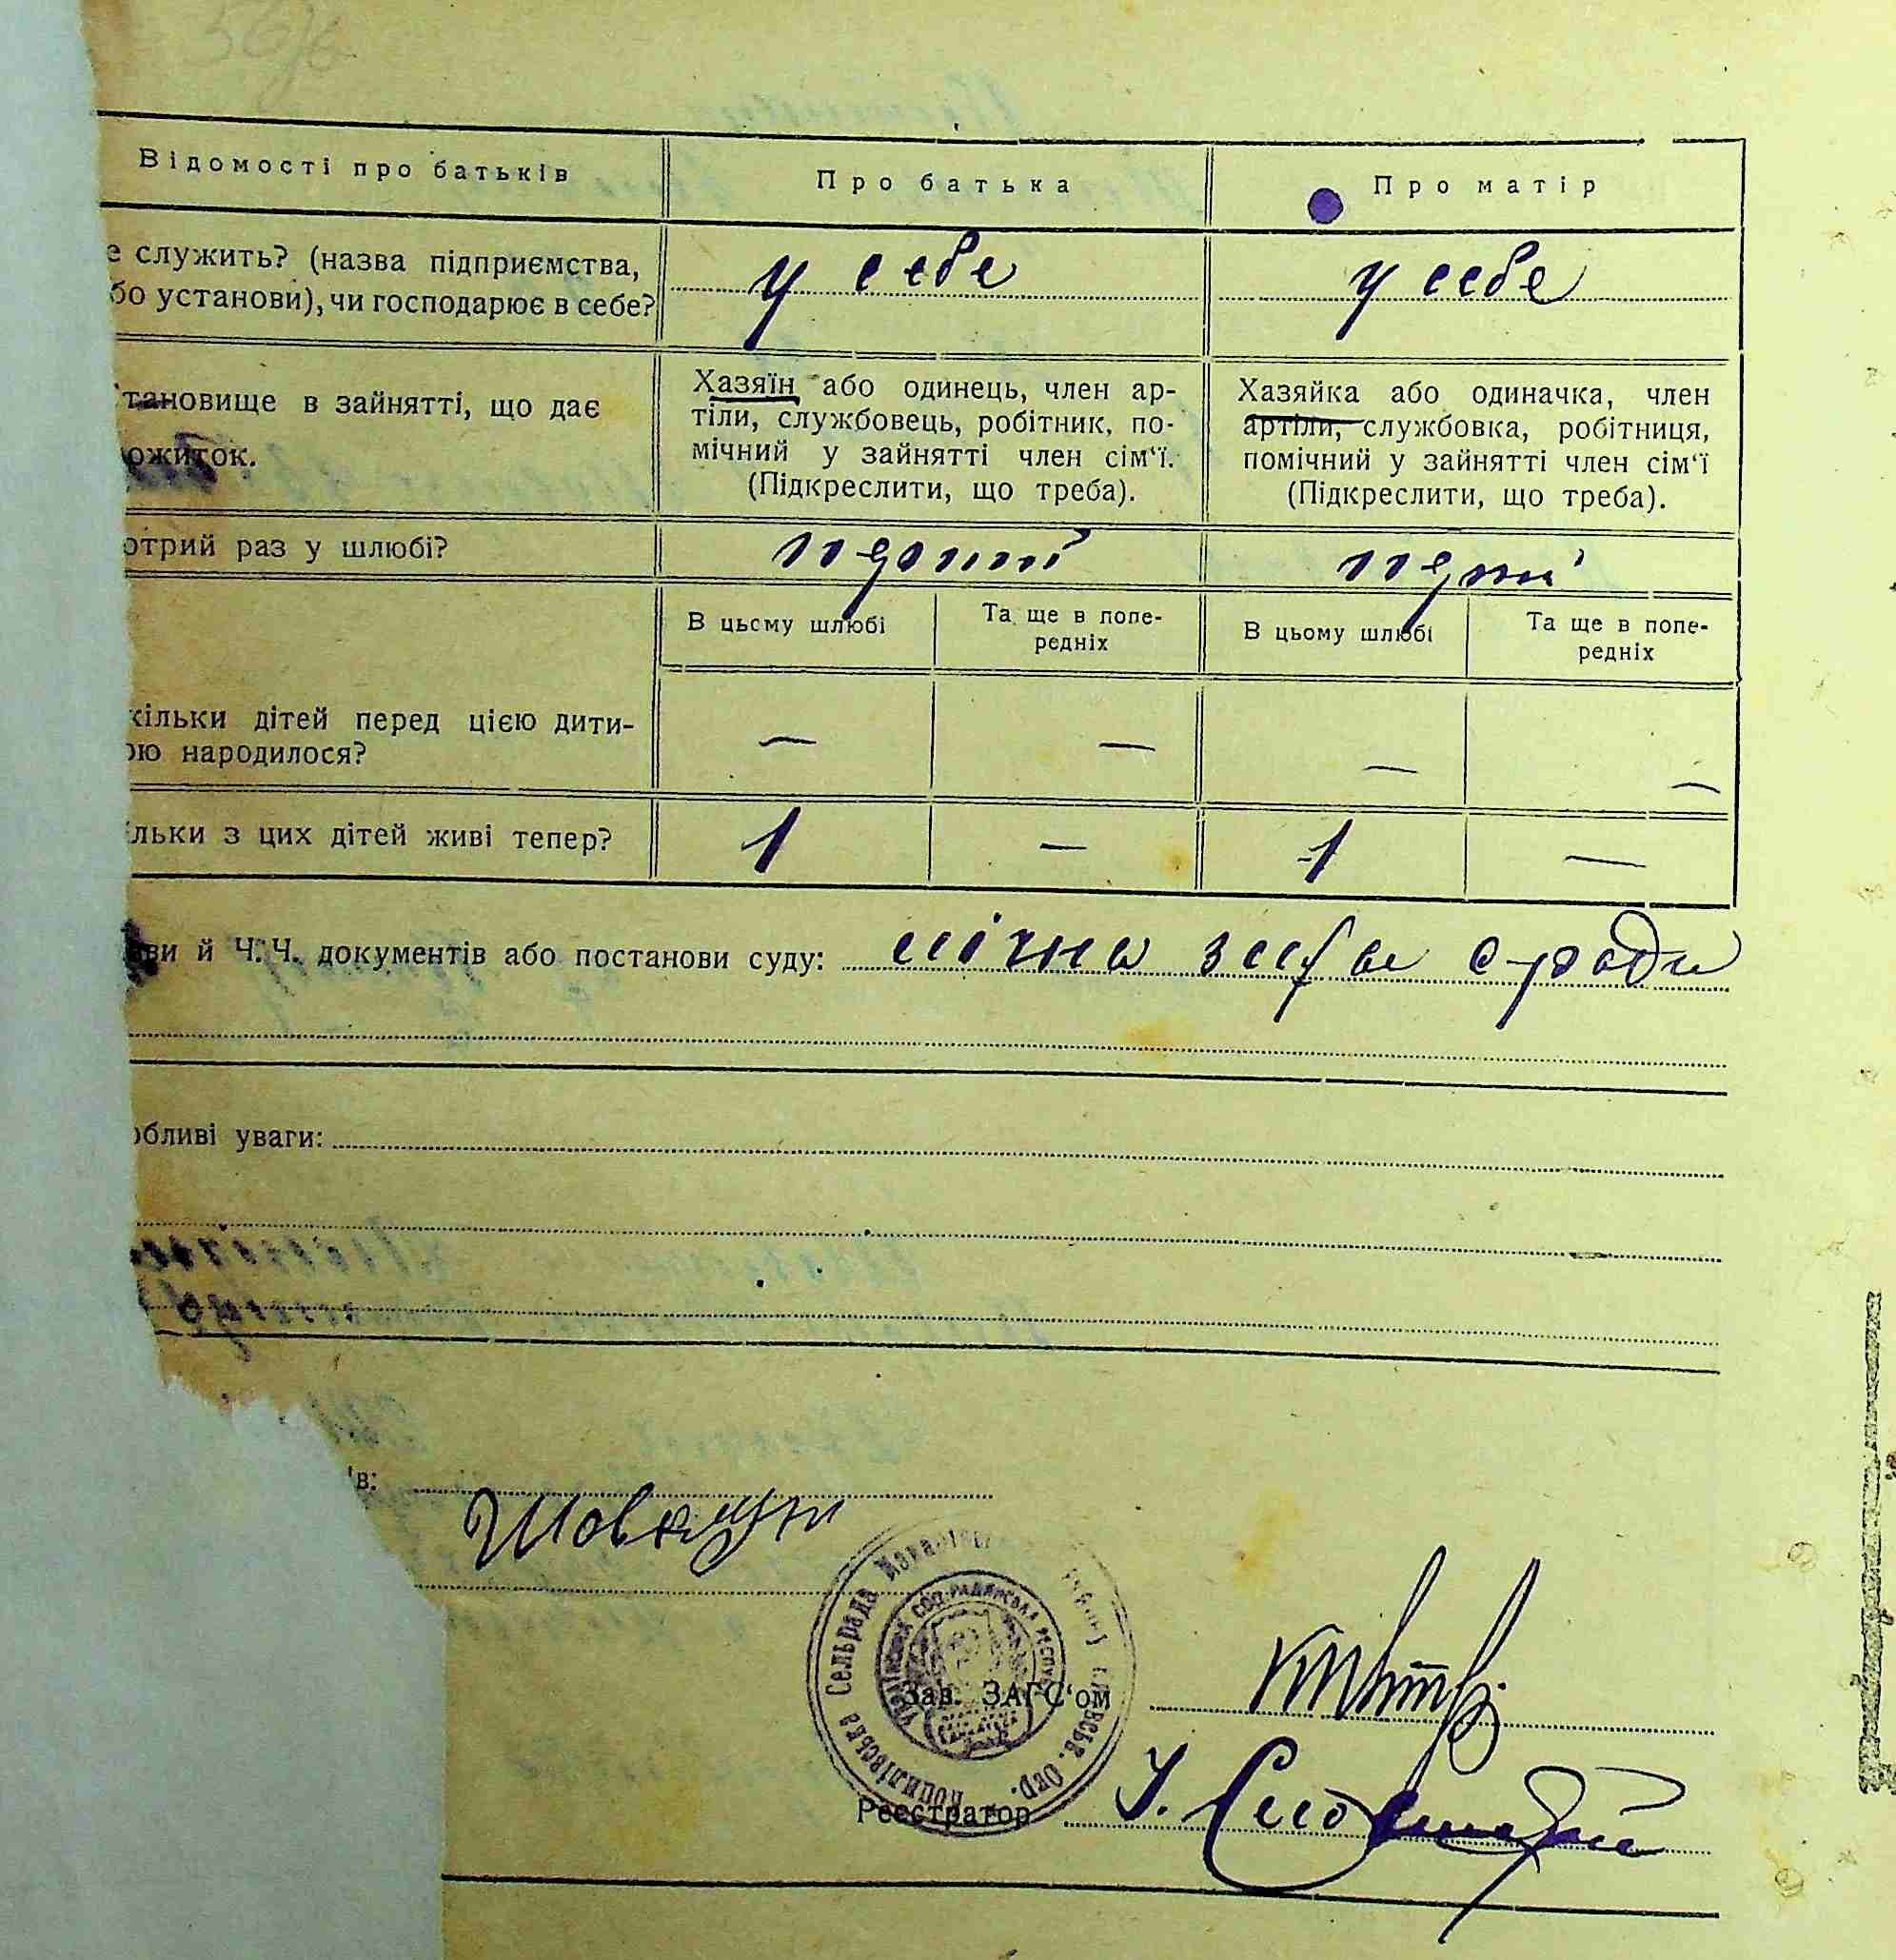 56/6
Відомості про батьків
Про батька
Про матір
е служить? (назва підприємства,
бо установи), чи господарює в себе?
у себе
у себе
тановище в зайнятті, що дає
ожиток.
Хазяїн або одинець, член ар-
тіли, службовець, робітник, по-
мічний у зайнятті член сім‘ї.
(Підкреслити, що треба).
Хазяйка або одиначка, член
артіли, службовка, робітниця,
помічний у зайнятті член сім‘ї
(Підкреслити, що треба).
отрий раз у шлюбі?
В цьому шлюбі
Та ще в попе-
редніх
В цьому шлюбі
Та ще в попе-
редніх
кільки дітей перед цією дити-
ою народилося?
—
—
—
—
льки з цих дітей живі тепер?
1
—
1
—
ви й Ч.Ч. документів або постанови суду:
обливі уваги:
ів:
Сельрада
СОЦ. РАДЯНСЬКА
Зав. ЗАГС‘ом
Реєстратор